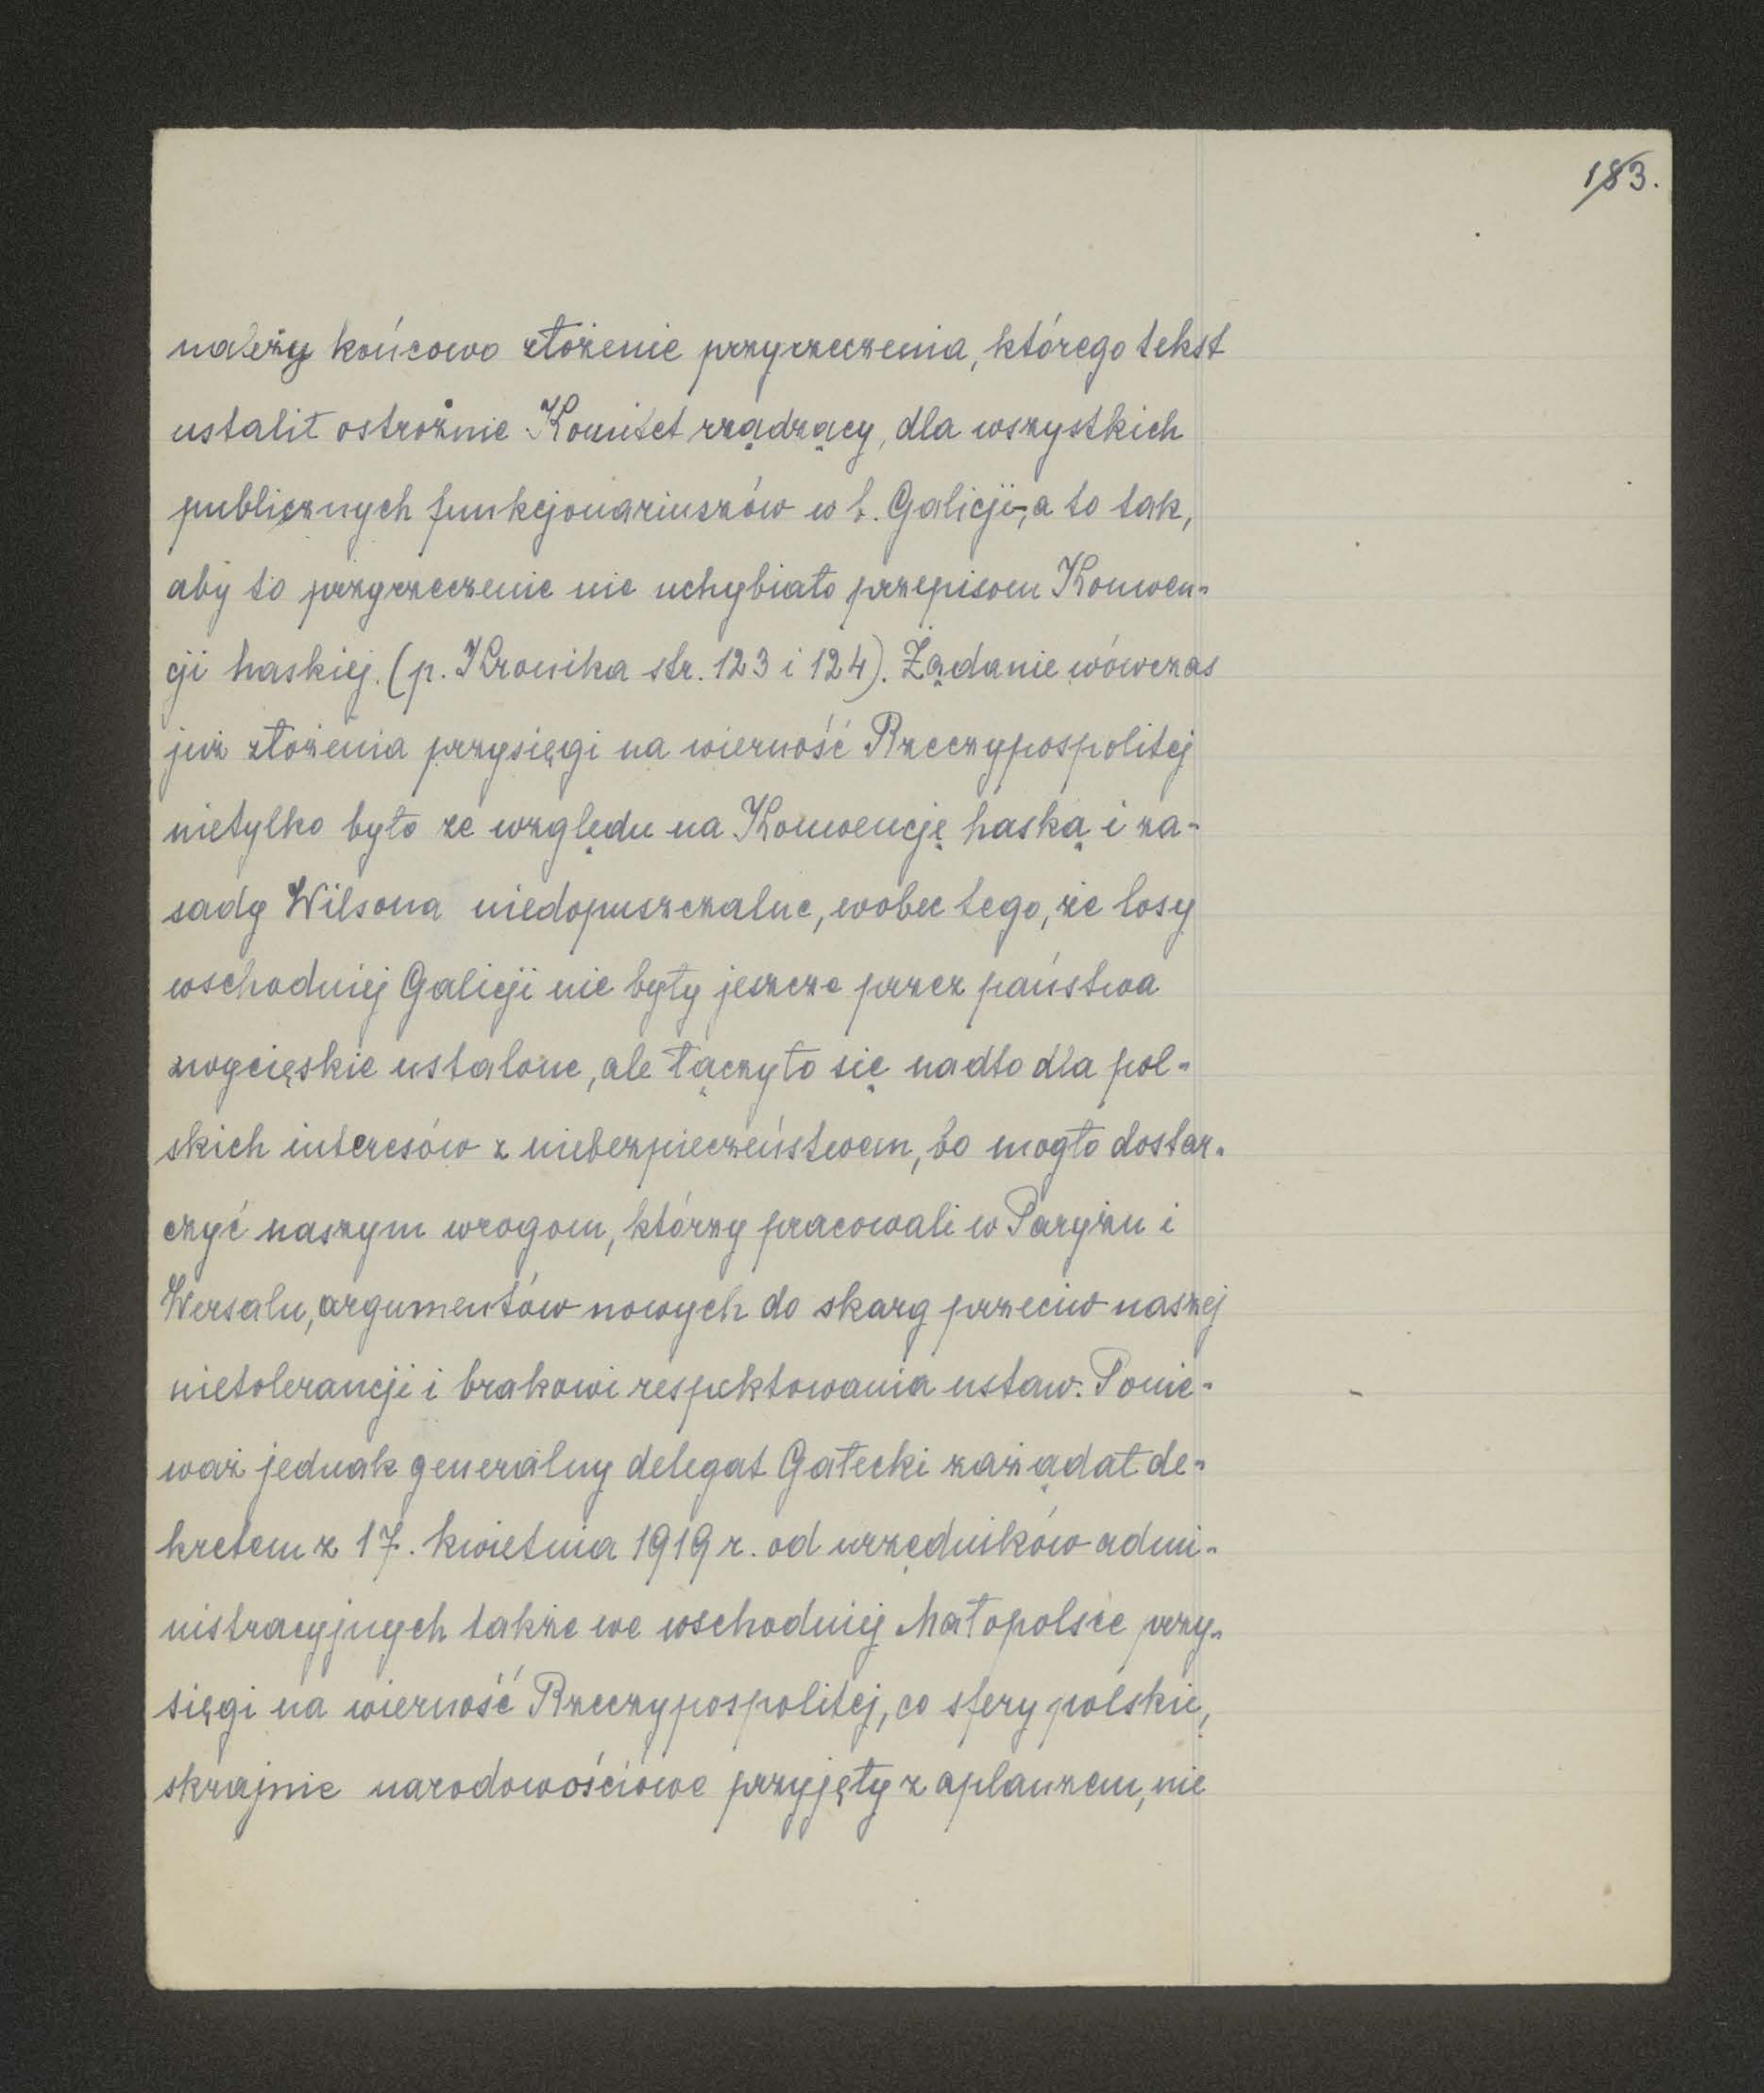 183.
należy końcowo złożenie przyrzeczenia, którego tekst
ustalił ostrożnie Komitet rządzący, dla wszystkich
publicznych funkcjonariuszów w b. Galicji, a to tak,
aby to przyrzeczenie nie uchybiało przepisom Konwen-
cji haskiej. (p. Kronika str. 123 i 124). Żądanie wówczas
już złożenia przysięgi na wierność Rzeczypospolitej
nietylko było ze względu na Konwencję haską i za-
sady Wilsona niedopuszczalne, wobec tego, że losy
wschodniej Galicji nie były jeszcze przez państwa
zwycięskie ustalone, ale łączyło się nadto dla pol-
skich interesów z niebezpieczeństwem, bo mogło dostar-
czyć naszym wrogom, którzy pracowali w Paryżu i
Wersalu, argumentów nowych do skarg przeciw naszej
nietolerancji i brakowi respektowania ustaw. Ponie-
waż jednak generalny delegat Gałecki zażądał de-
kretem z 17. kwietnia 1919 r. od urzędników admi-
nistracyjnych także we wschodniej Małopolsce przy-
sięgi na wierność Rzeczypospolitej, co sfery polskie,
skrajnie narodowościowe przyjęły z aplauzem, nie